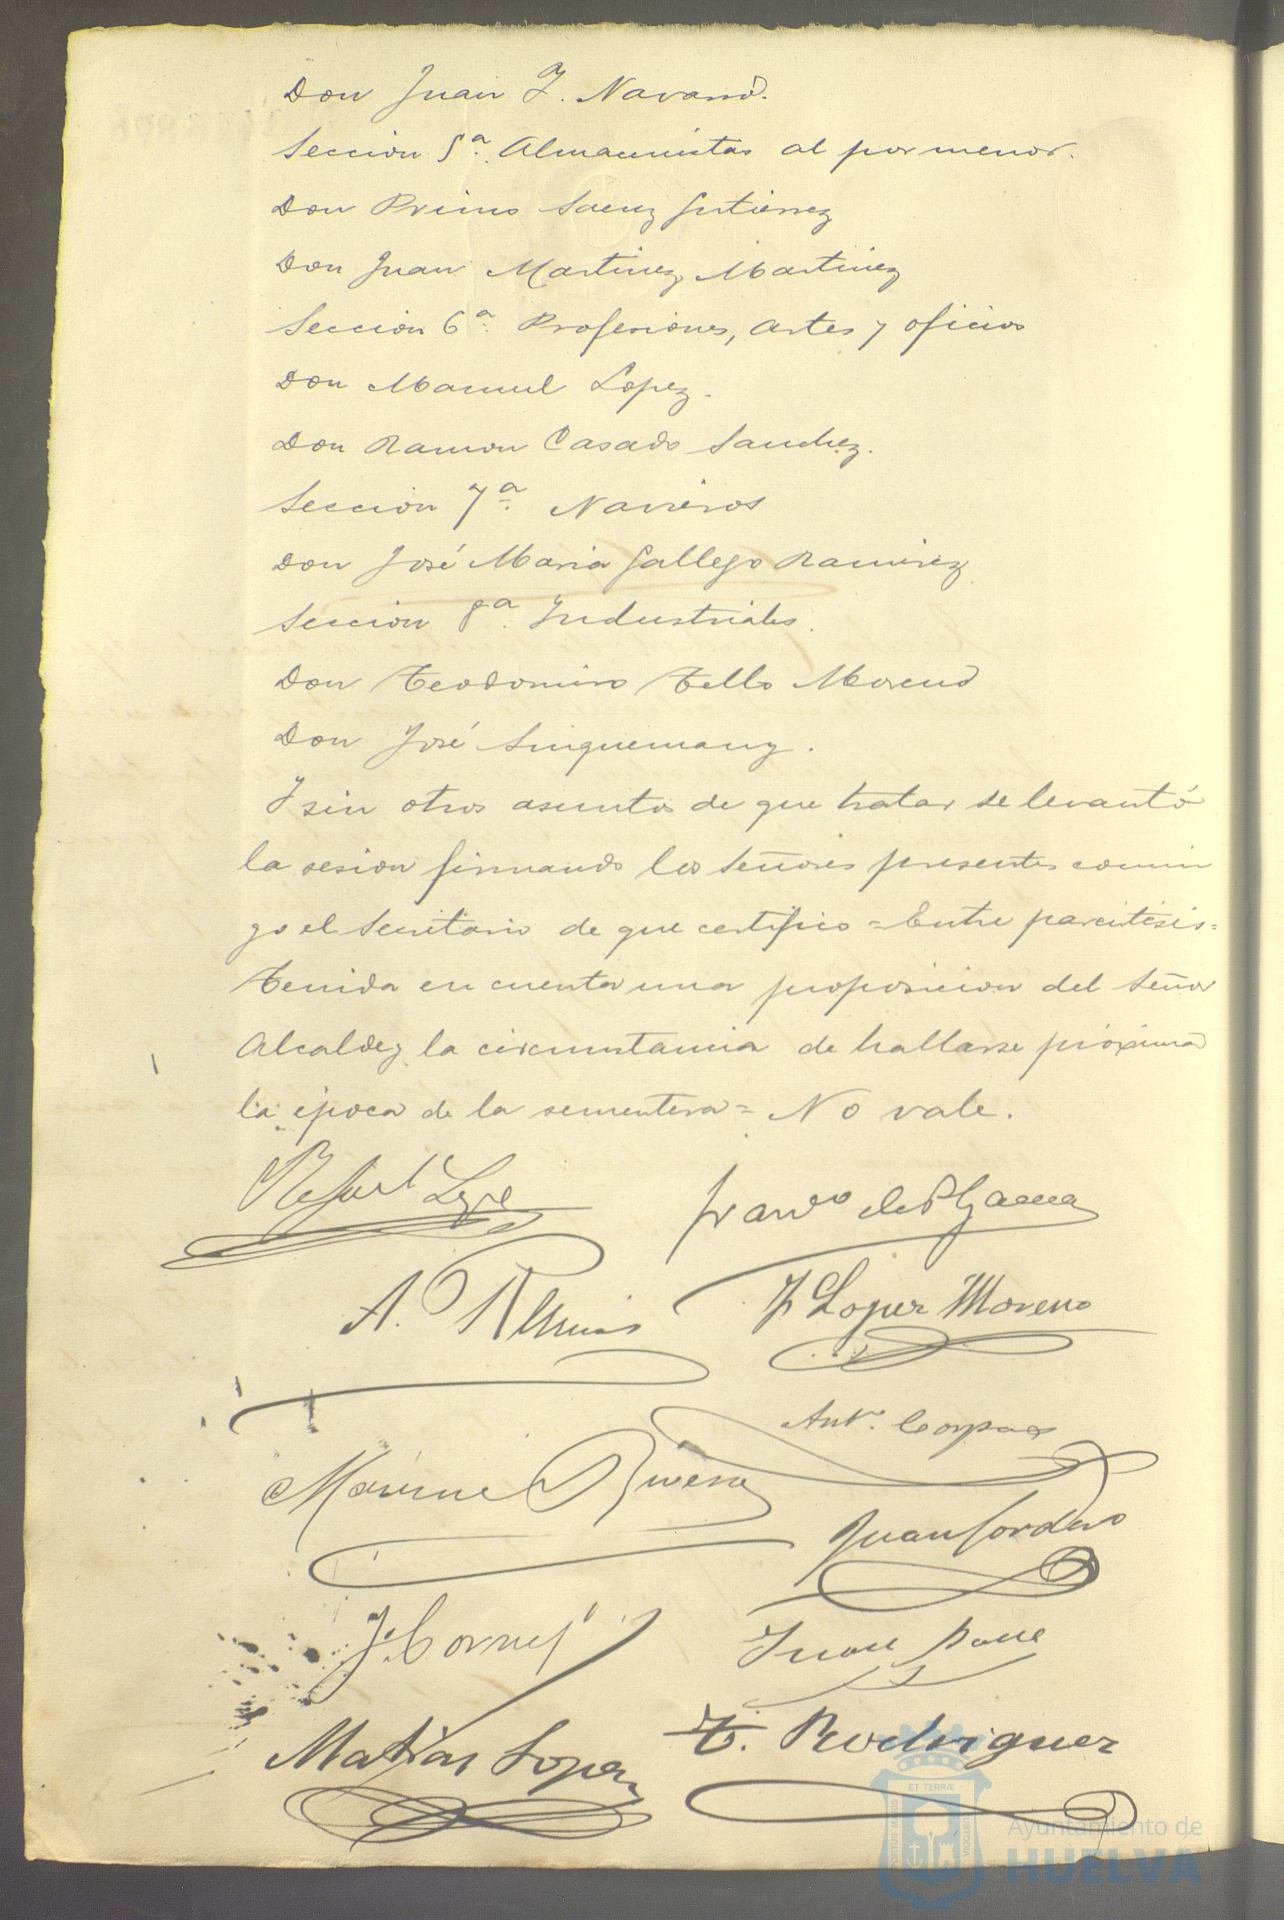 Don Juan J. Navarro.
Seccion 5ª. Almacenistas al por menor.
Don Primo Saenz Gutierrez
Don Juan Martinez Martinez
Seccion 6ª. Profesiones, artes y oficios
Don Manuel Lopez.
Don Ramon Casado Sanchez.
Seccion 7ª. Navieros
Don José Maria Gallego Ramirez
Seccion 8ª. Industriales.
Don Teodomiro Tello Moreno
Don José
Y sin otros asuntos de que tratar se levantó
la sesion firmando los Señores presentes conmi
go el Secretario de que certifico = Entre parentesis =
tenida en cuenta una proposicion del Señor
Alcalde y la circunstancia de hallarse próxima
la época de la sementera = No vale.
Franco de P Garcia
A.
J Lopez Moreno
Antº. Corpas
Rivera
Juan Cordero
Juan
Matias Lopez
T. Rodriguez
ET TERRÆ
PORTUS MARIS
CUSTODIA
Ayuntamiento de
HUELVA